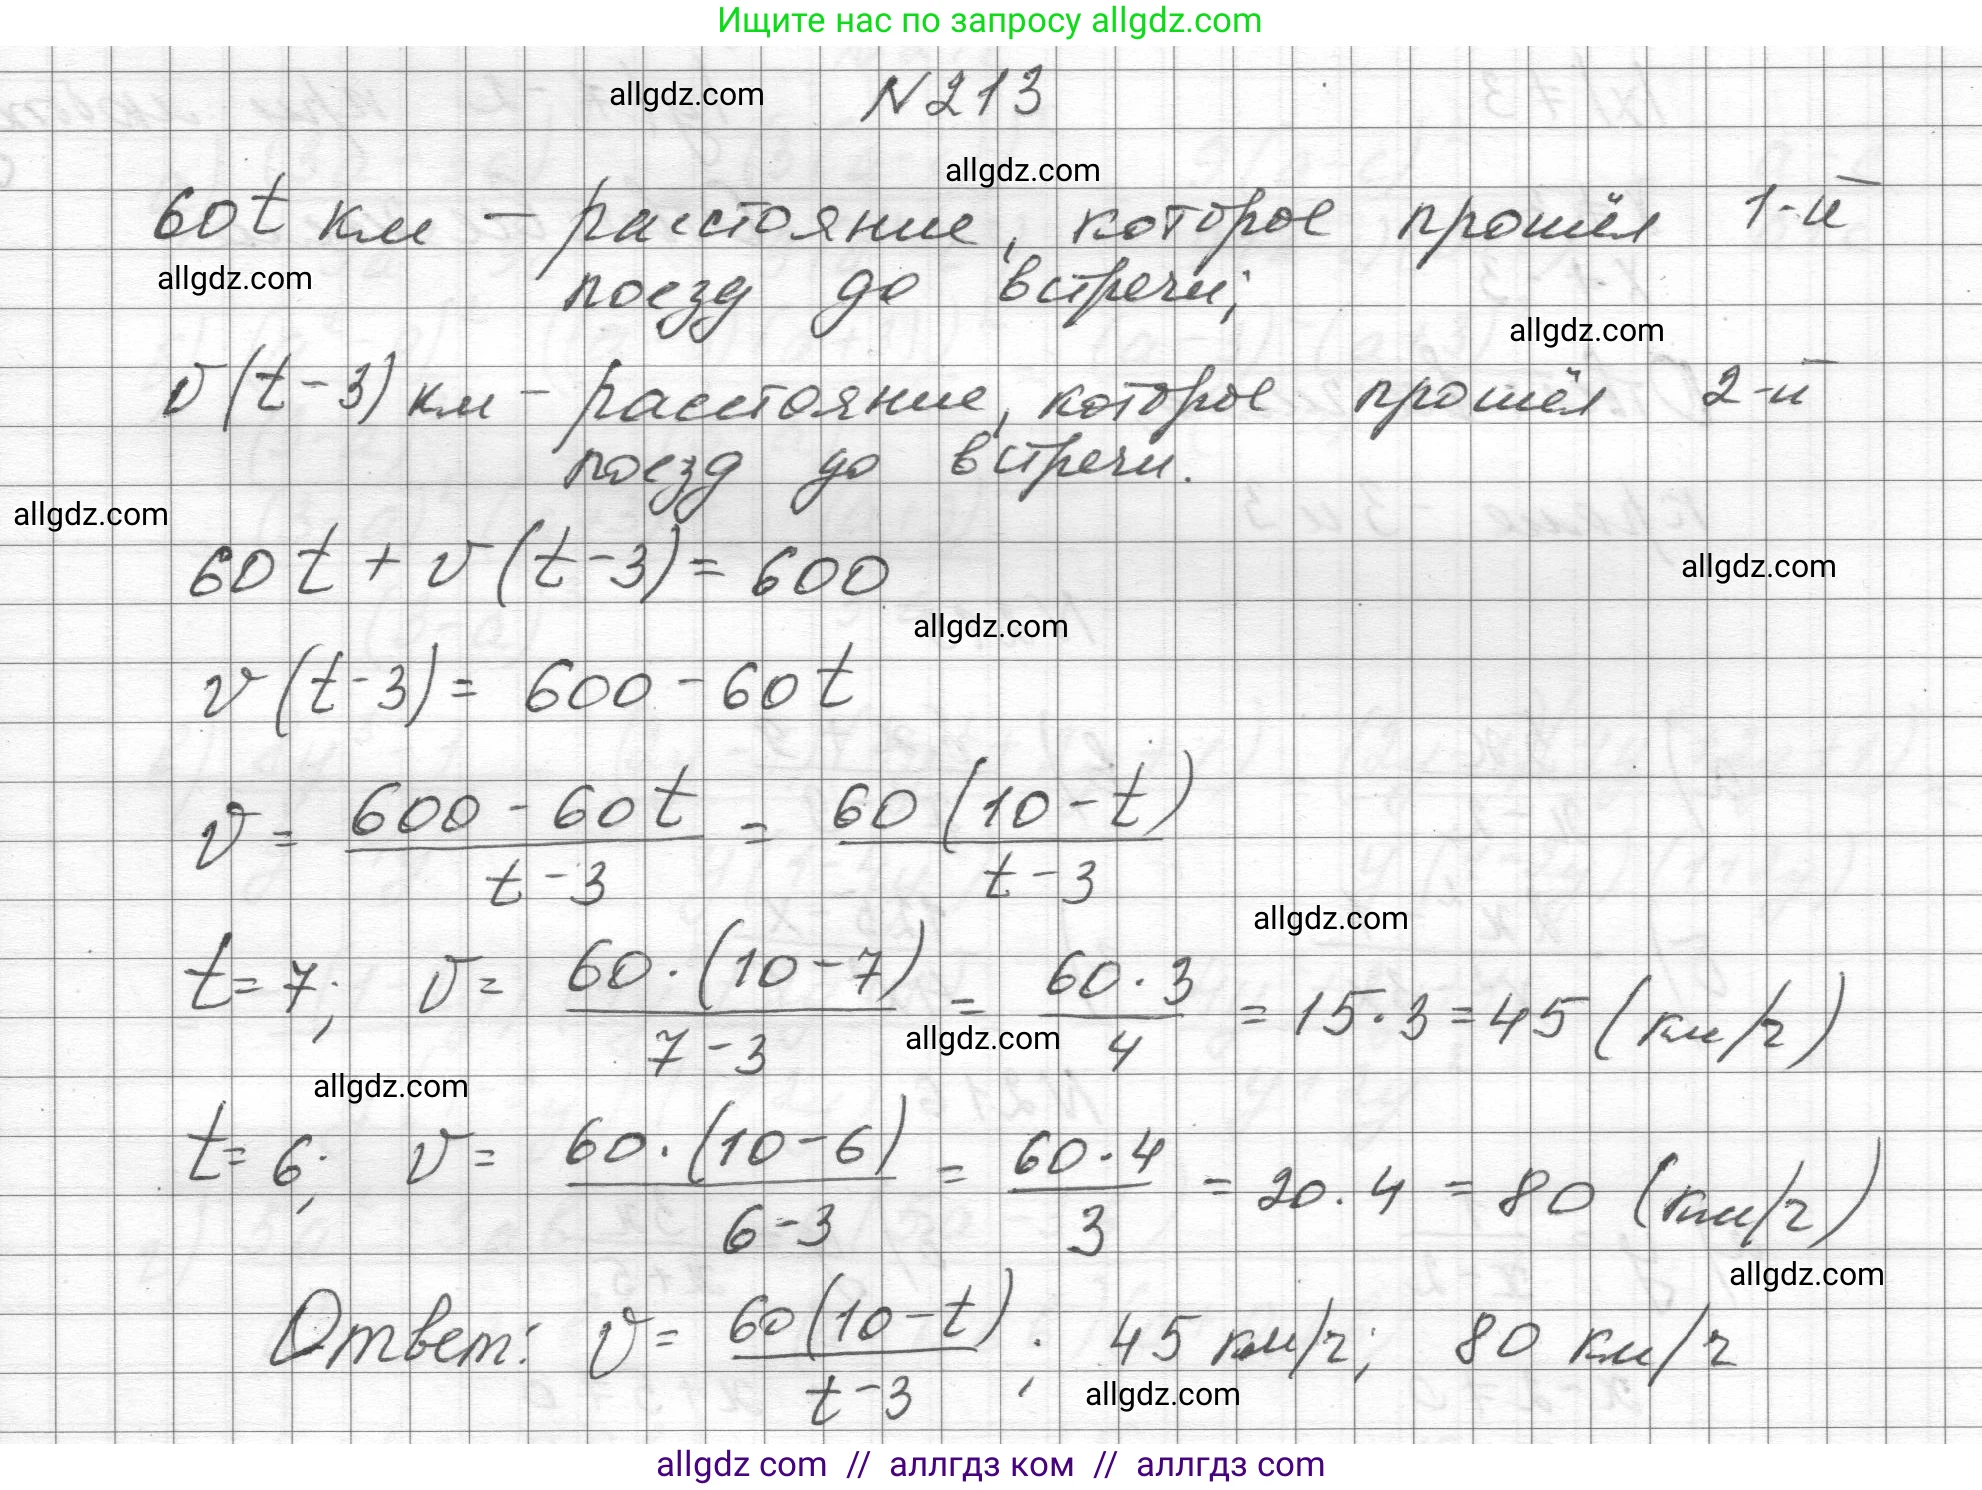 Ищите нас по запросу allgdz.com
allgdz.com
N 213
allgdz.com
60t км – расстояние, которое прошёл 1-й
allgdz.com
поезд до встречи;
allgdz.com
v(t-3) км – расстояние, которое прошёл 2-й
поезд до встречи.
allgdz.com
60t + v(t-3) = 600
allgdz.com
allgdz.com
v(t-3) = 600 - 60t
v = \frac{600 - 60t}{t-3} = \frac{60(10-t)}{t-3}
allgdz.com
t = 7; v = \frac{60·(10-7)}{7-3} = \frac{60·3}{4} = 15·3 = 45 (км/ч)
allgdz.com
allgdz.com
t = 6; v = \frac{60·(10-6)}{6-3} = \frac{60·4}{3} = 20·4 = 80 (км/ч)
allgdz.com
Ответ: v = \frac{60(10-t)}{t-3}; 45 км/ч; 80 км/ч
allgdz.com
allgdz com // аллгдз ком // аллгдз com